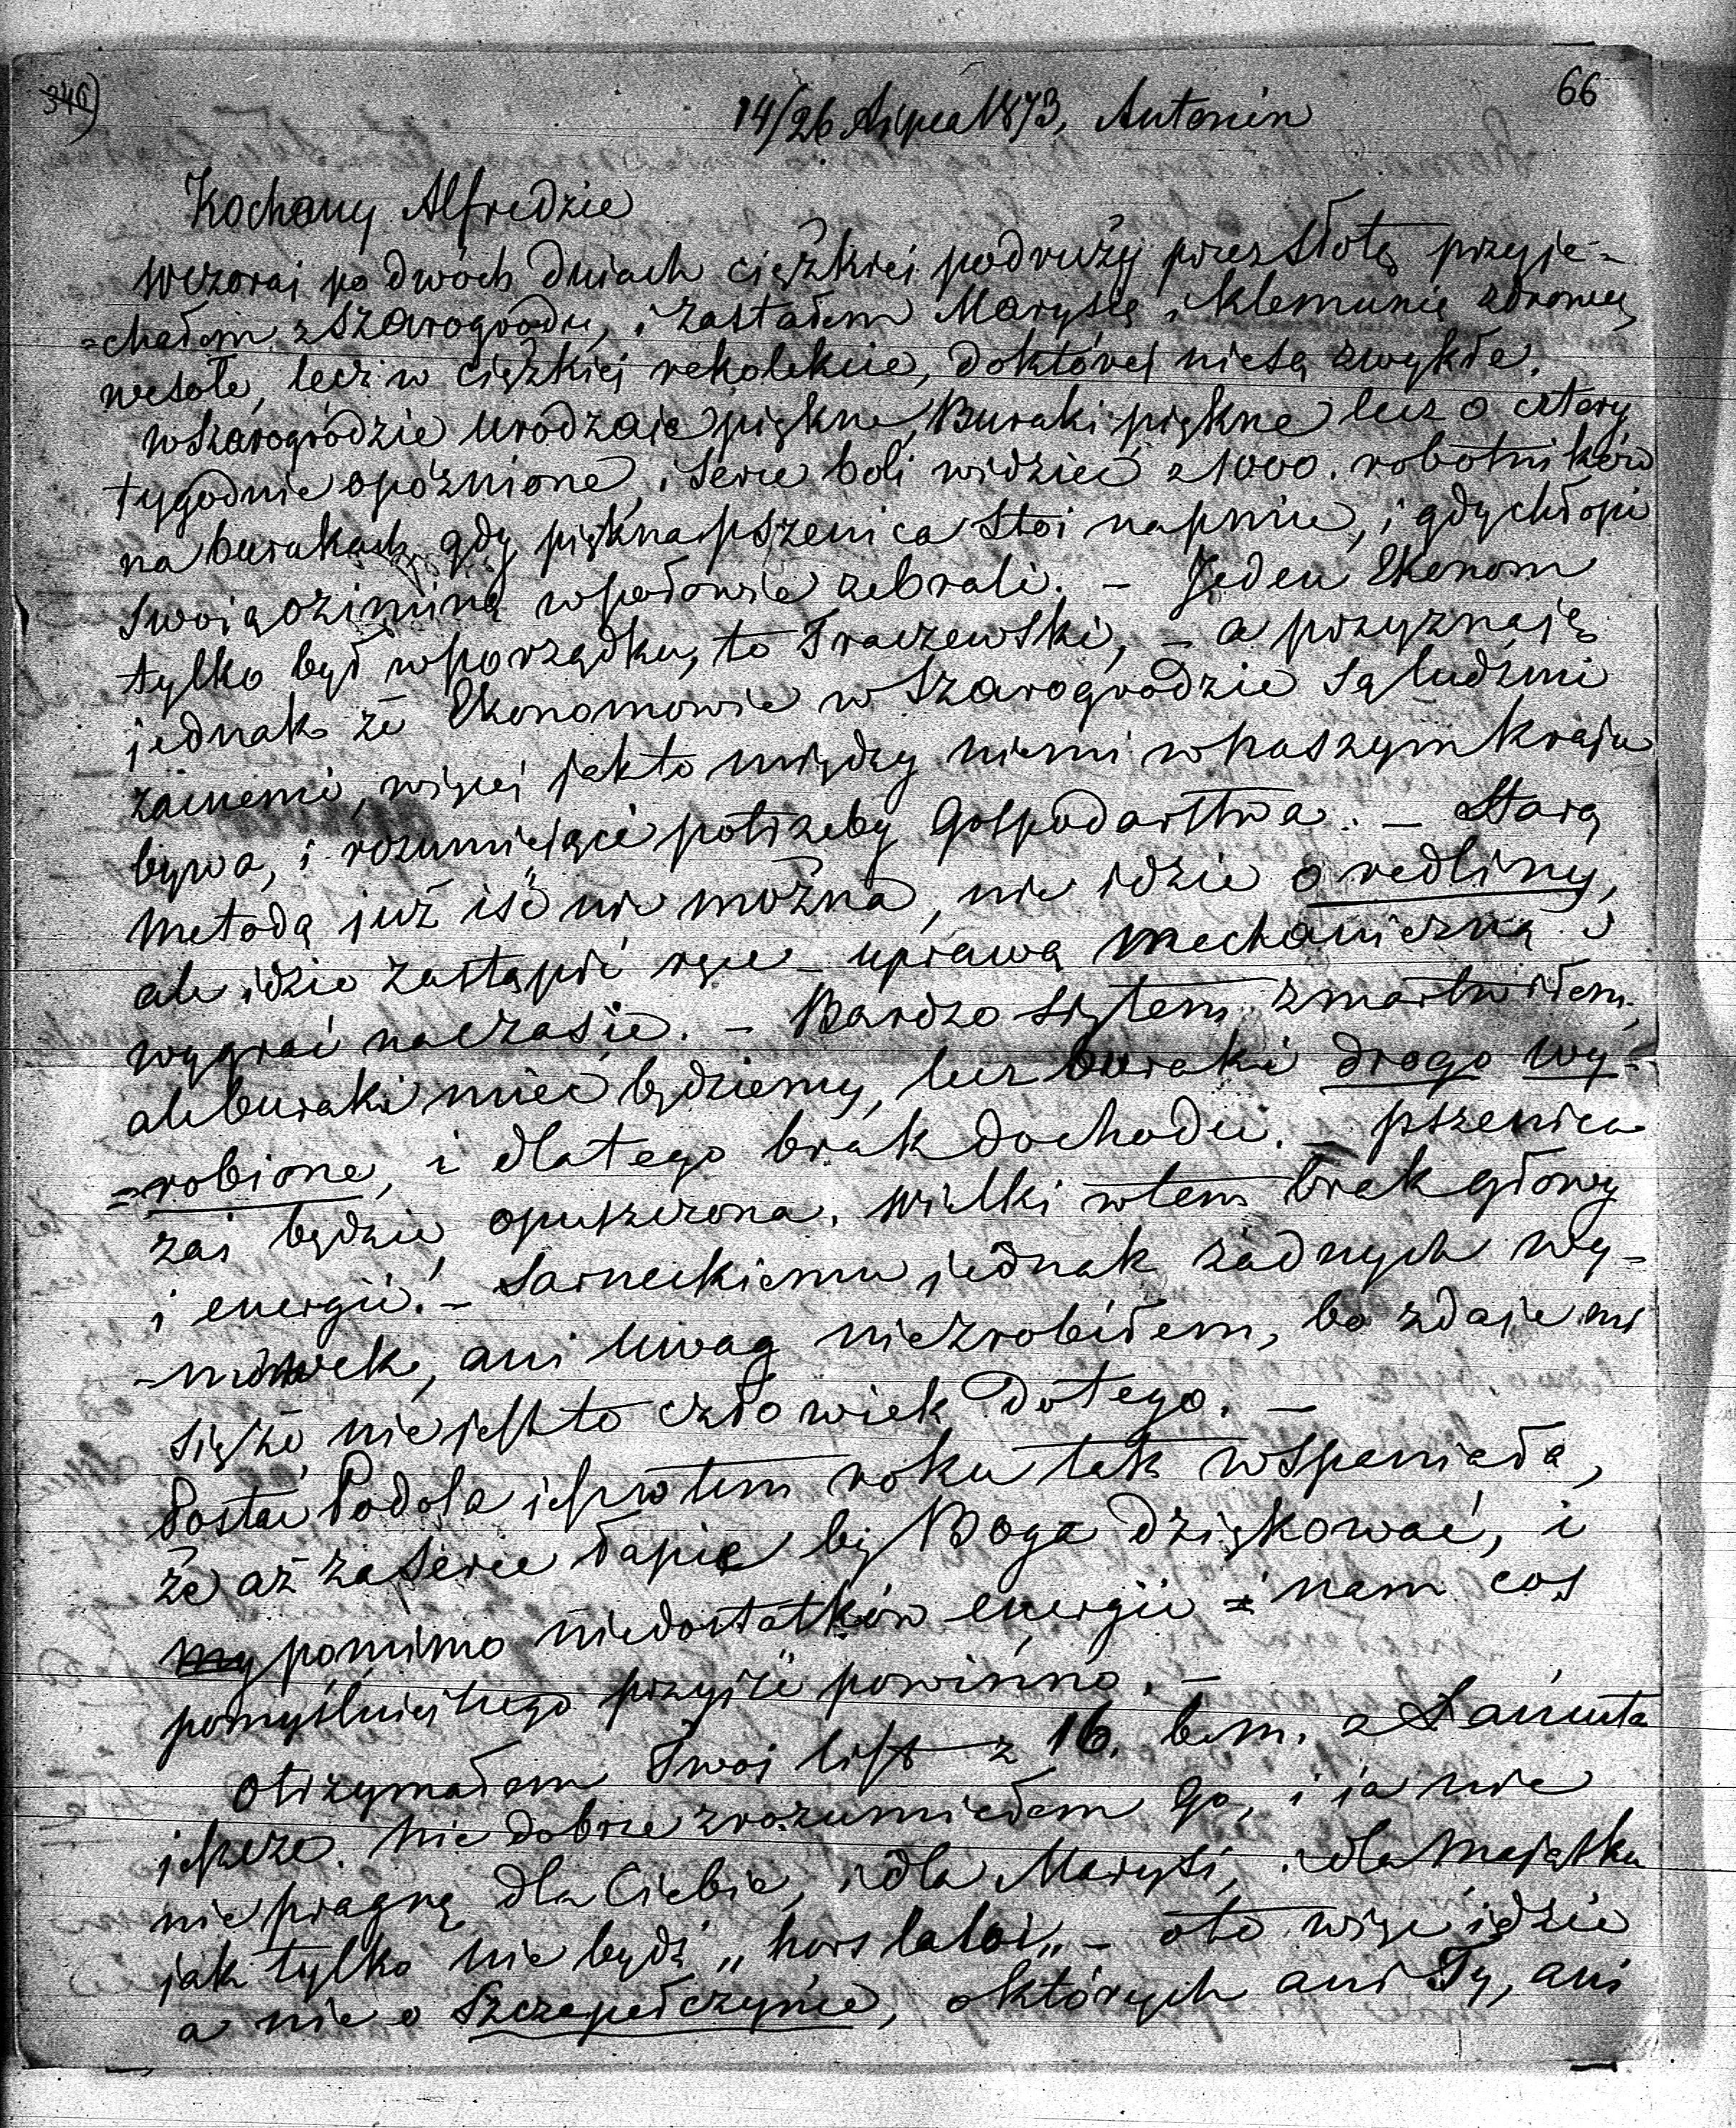 346)
66
14/26 Lipca 1873, Antonin
Kochany Alfredzie
Wczoraj po dwóch dniach ciężkiéj podruży przez słotę przyje=
=chałem z Szarogrodu, i zastałem Marysię i Klemunię zdrowe,
wesołe, lecz w ciężkiéj rekolekcie, doktóréj niesą zwykłe.
w Szarogrodzie urodzaje piękne, Buraki piękne lecz o cztery
tygodnie opóźnione, i serce boli widzieć z 1000. robotników
na burakach gdy piękna pszenica stoi napniu, i gdy chłopi
swoią oziminę wpołowie zebrali. — Jeden Ekonom
tylko był wporządku, to Traczewski, — a przyznaję
jednak że Ekonomowie w Szarogrodzie są ludźmi
zacnemi, więcéj jakto między niemi w naszym kraju
bywa, i rozumiejące potrzeby Gospodarstwa. — Starą
metodą już iść nie można, nie idzie o redliny,
ale idzie zastąpić ręce — uprawą mechaniczną i
wygrać naczasie. — Bardzo siętem zmartwiłem,
ale buraki mieć będziemy, lecz buraki drogo wy=
=robione, i dlatego brak dochodu. — pszenica
zaś będzie opuszczona. Wielki wtem brak głowy
i energii. — Sarneckiemu jednak żadnych wy-
-mówek, ani uwag niezrobiłem, bo zdaje mi
się że nie jestto człowiek dotego. —
Postać Podola jest wtem roku tak wspaniała,
że aż zaserce łapie by Boga dziękować, i
my pomimo niedostatków energii i nam coś
pomyślniejszego przyjść powinno. —
Otrzymałem Twój list z 16. b.m. z Łańcuta
jeszcze. Nie dobrze zrozumiałem go, i ja nic
nie pragnę dla Ciebie, i dla Marysi, i dla Majątku
jak tylko nie być „hors la loi„ — oto więc idzie
a nie o Szczepełczyńce, októrych ani Ty, ani